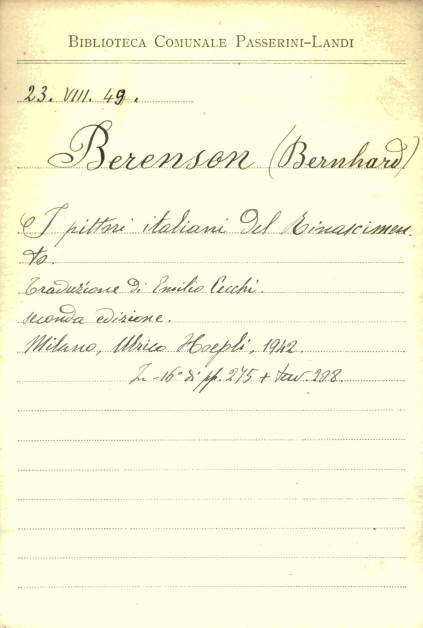 BIBLIOTECA COMUNALE PASSERINI-LANDI
23. VIII. 49.
Berenson (Bernhard)
I pittori italiani del Rinascimen
to.
Traduzione di Emilio Cecchi.
seconda edizione.
Milano, Ulrico Hoepli, 1942.
In-16° di pp. 275 + tav. 208.